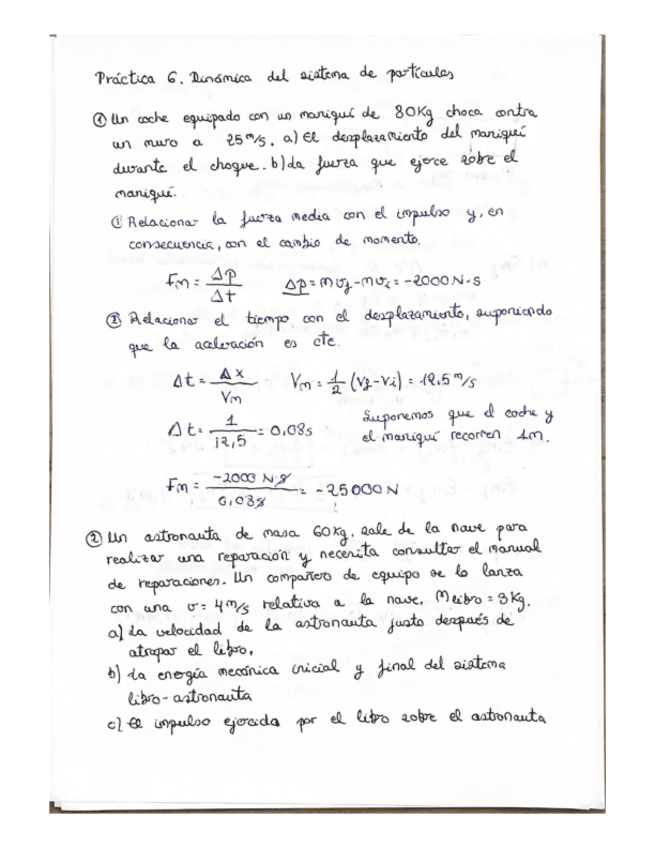 Práctica 6. Dinámica del sistema de partículas
① Un coche equipado con un maniquí de 80Kg choca contra
un muro a 25 m/s. a) El desplazamiento del maniquí
durante el choque. b) La fuerza que ejerce sobre el
maniquí.
① Relacionar la fuerza media con el impulso y, en
consecuencia, con el cambio de momento.
Fm = Δp / Δt    Δp = m vf - m vi = -2000 N·s
② Relacionar el tiempo con el desplazamiento, suponiendo
que la aceleración es cte.
Δt = Δx / Vm    Vm = 1/2 (vf - vi) = 12,5 m/s
Δt = 1 / 12,5 = 0,08s    Suponemos que el coche y
el maniquí recorren 1m.
Fm = -2000 N·s / 0,08s = -25000N
② Un astronauta de masa 60Kg, sale de la nave para
realizar una reparación y necesita consultar el manual
de reparaciones. Un compañero de equipo se lo lanza
con una v = 4 m/s relativa a la nave. M libro = 3Kg.
a) La velocidad de la astronauta justo después de
atrapar el libro.
b) La energía mecánica inicial y final del sistema
libro-astronauta
c) El impulso ejercida por el libro sobre el astronauta